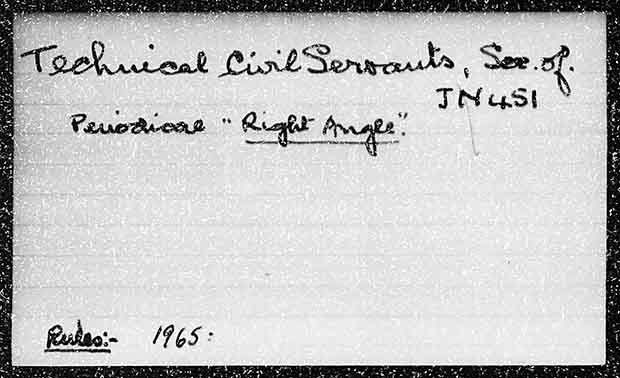 Technical Civil Servants, Soc. of.
JN451
Periodical "Right Angle".
Rules:- 1965: